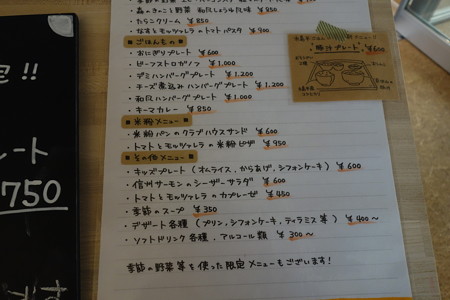 ・森のきのこと野菜 和風しょうゆ味 ¥950
・たらこクリーム ¥850
・なすとモッツァレラのトマトパスタ ¥900
■ごはんもの■
・おにぎりプレート ¥600
・ビーフストロガノフ ¥1,000
・デミハンバーグプレート ¥1,200
・チーズ煮込みハンバーグプレート ¥1,200
・和風ハンバーグプレート ¥1,000
・キーマカレー ¥850
■米粉メニュー■
・米粉パンのクラブハウスサンド ¥600
・トマトとモッツァレラの米粉ピザ ¥950
■その他メニュー■
・キッズプレート(オムライス、からあげ、シフォンケーキ) ¥600
・信州サーモンのシーザーサラダ ¥600
・トマトとモッツァレラのカプレーゼ ¥450
・季節のスープ ¥350
・デザート各種(プリン、シフォンケーキ、ティラミス等) ¥400〜
・ソフトドリンク各種、アルコール類 ¥300〜
季節の野菜等を使った限定メニューもございます!
豚汁プレート ¥600
!!
レート
750